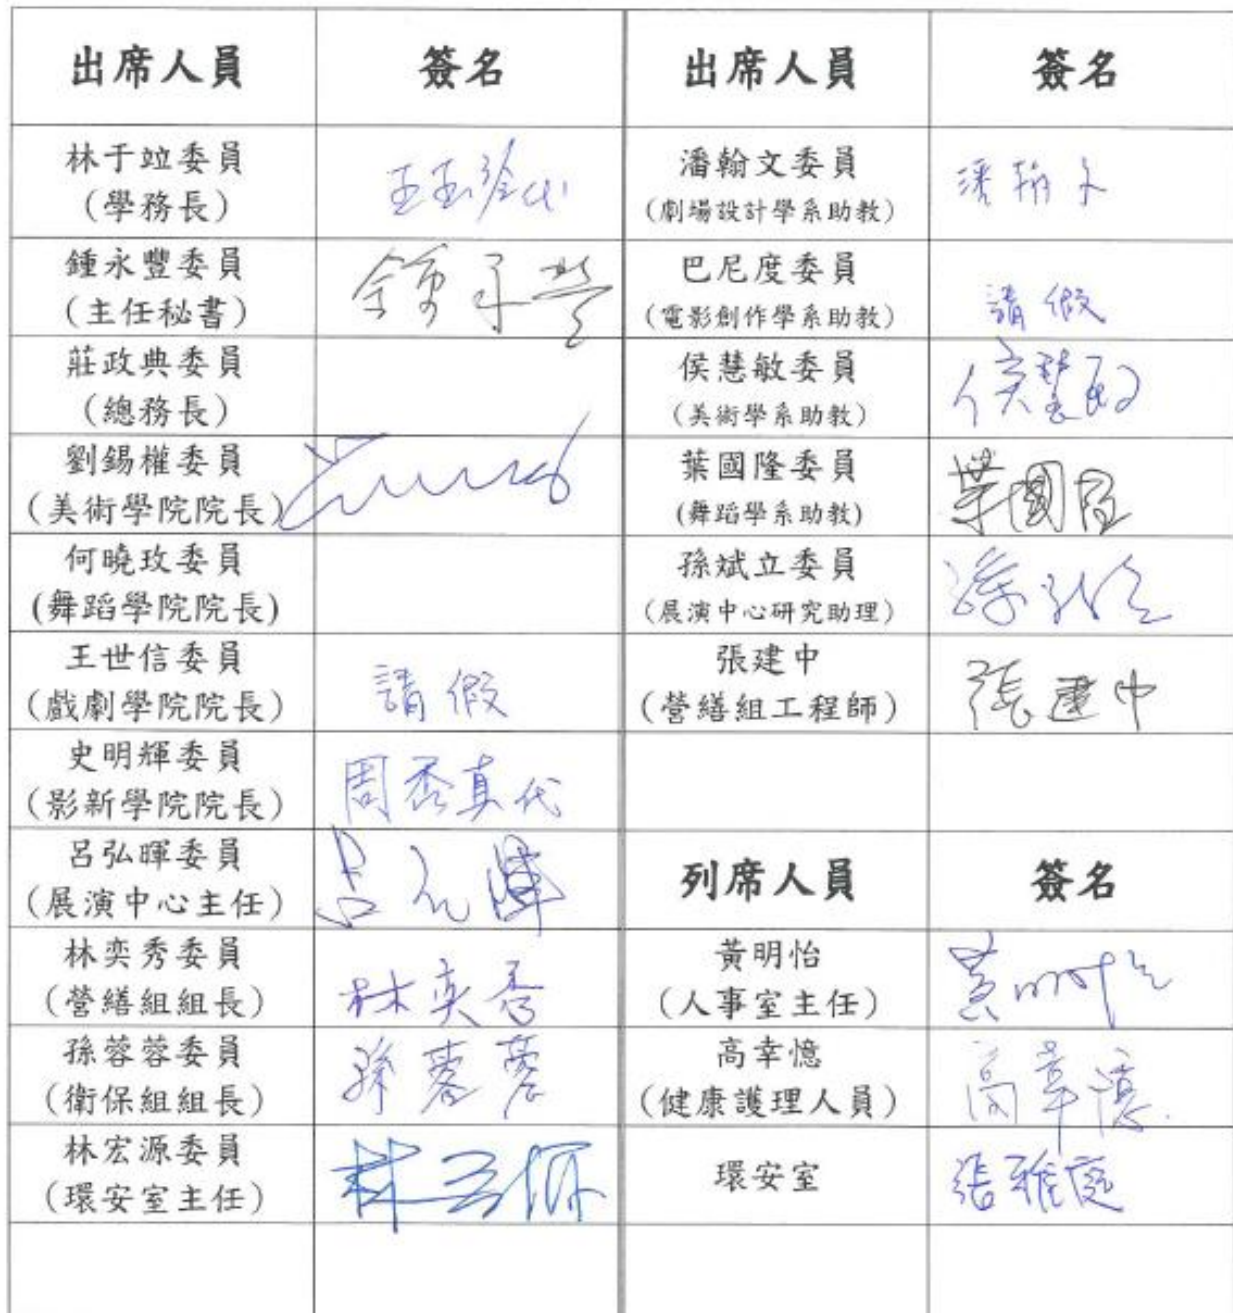 出席人員 簽名 出席人員 簽名
林于竝委員
(學務長)
代
潘翰文委員
(劇場設計學系助教)
潘翰文
鍾永豐委員
(主任秘書)
鍾永豐
巴尼度委員
(電影創作學系助教)
請假
莊政典委員
(總務長)
侯慧敏委員
(美術學系助教)
侯慧敏
劉錫權委員
(美術學院院長)
葉國隆委員
(舞蹈學系助教)
葉國隆
何曉玫委員
(舞蹈學院院長)
孫斌立委員
(展演中心研究助理)
孫斌立
王世信委員
(戲劇學院院長)
請假
張建中
(營繕組工程師)
張建中
史明輝委員
(影新學院院長)
周秀真代
呂弘暉委員
(展演中心主任)
呂弘暉
列席人員 簽名
林奕秀委員
(營繕組組長)
林奕秀
黃明怡
(人事室主任)
黃明怡
孫蓉蓉委員
(衛保組組長)
孫蓉蓉
高幸憶
(健康護理人員)
高幸憶
林宏源委員
(環安室主任)
林宏源
環安室
張雅庭